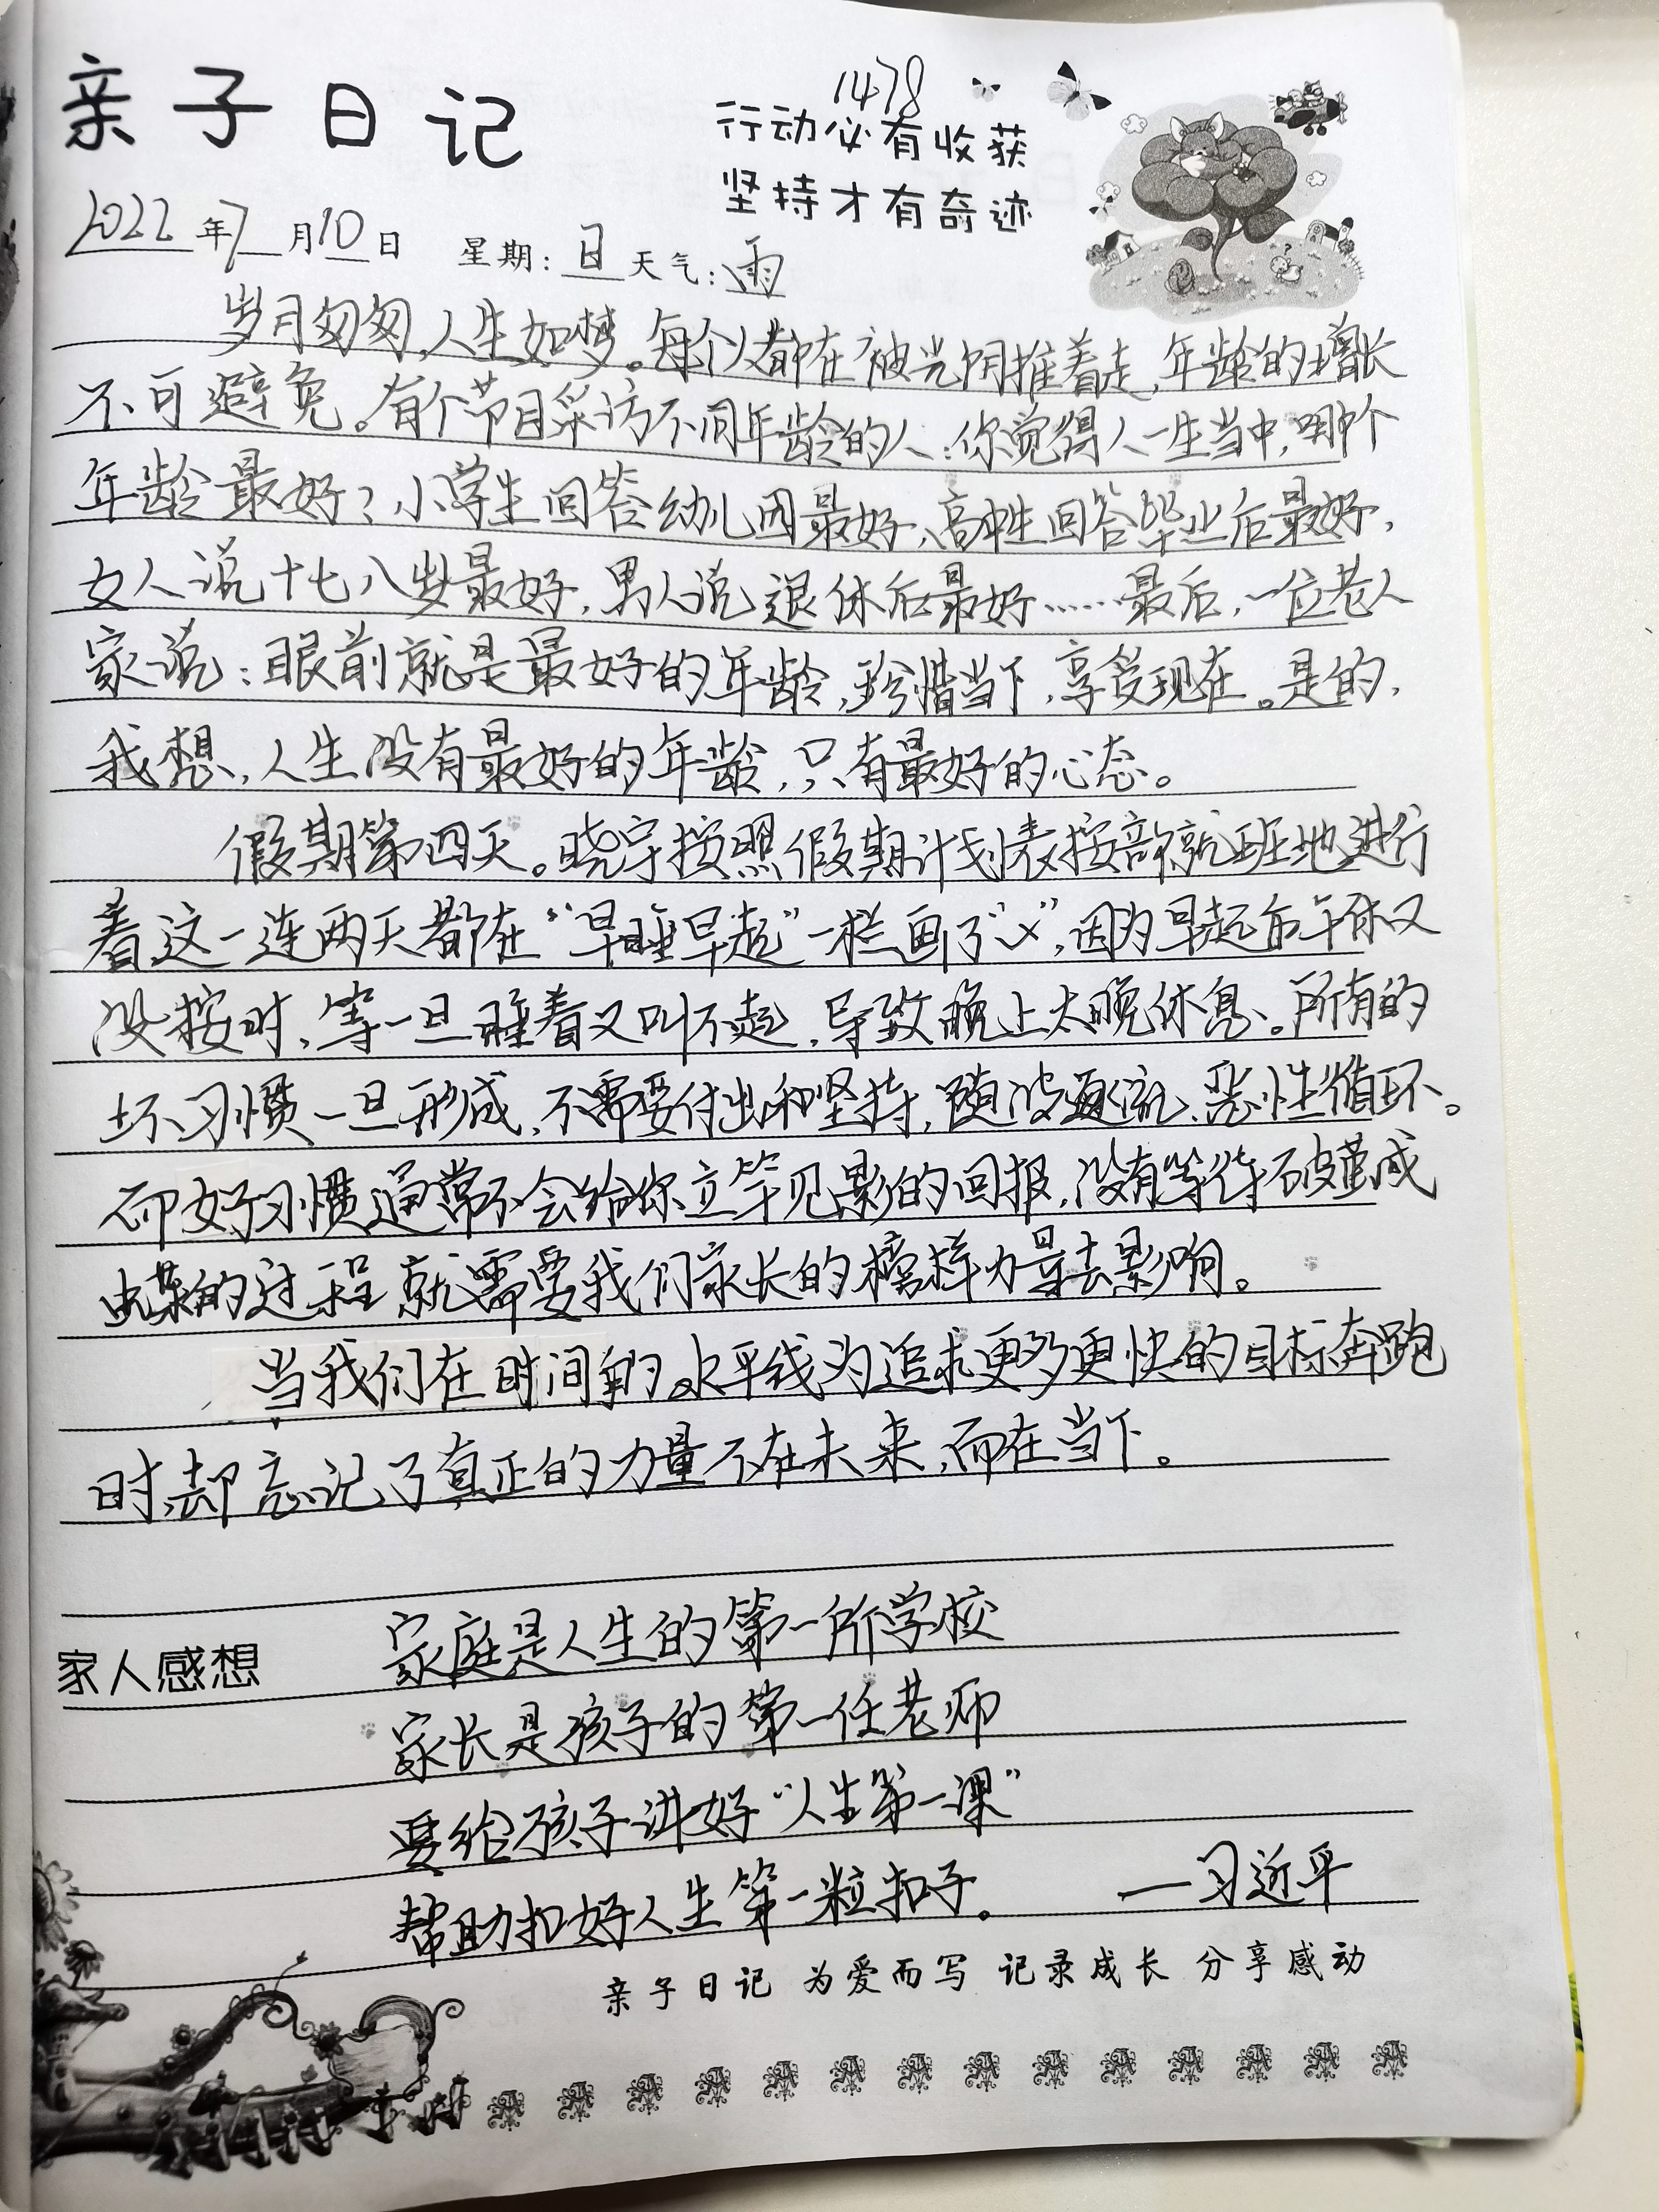 亲子日记
1478
行动必有收获
坚持才有奇迹
2022年7月10日 星期:日 天气:雨
岁月匆匆,人生如梦。每个人都在被光阴推着走,年龄的增长
不可避免。有个节目采访不同年龄的人:你觉得人一生当中,哪个
年龄最好?小学生回答幼儿园最好,高中生回答毕业后最好,
女人说十七八岁最好,男人说退休后最好……最后,一位老人
家说:眼前就是最好的年龄,珍惜当下,享受现在。是的,
我想,人生没有最好的年龄,只有最好的心态。
假期第四天。晓宇按照假期计划表按部就班地进行
着这一连两天都在“早睡早起”一栏画了“×”,因为早起后午休又
没按时,等一旦睡着又叫不起,导致晚上太晚休息。所有的
坏习惯一旦形成,不需要付出和坚持,随波逐流、恶性循环。
而好习惯通常不会给你立竿见影的回报,没有等待破茧成
蝶的过程就需要我们家长的榜样力量去影响。
当我们在时间的水平线为追求更多更快的目标奔跑
时,却忘记了真正的力量不在未来,而在当下。
家人感想 家庭是人生的第一所学校
家长是孩子的第一任老师
要给孩子讲好“人生第一课”
帮助扣好人生第一粒扣子。 —习近平
亲子日记 为爱而写 记录成长 分享感动